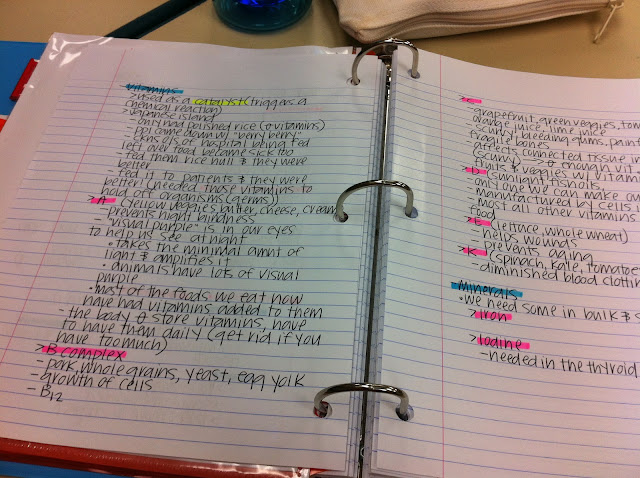 Vitamins
> used as a catalyst (triggers a
chemical reaction)
> Japanese island
- only had polished rice (0 vitamins)
- ppl came down w/ "berry berry"
- chickens of hospital being fed
left over food became sick too
- fed them rice hull & they were
better
- fed it to patients & they were
better (needed those vitamins to
hold off organisms (germs))
> A (yellow veggies, butter, cheese, cream
- prevents night blindness
- "visual purple" is in our eyes
to help us see at night
• takes the minimal amnt of
light & amplifies it
• animals have lots of visual
purple
• most of the foods we eat now
have had vitamins added to them
- the body store vitamins, have
to have them daily (get rid if you
have too much)
> B complex
- pork, whole grains, yeast, egg yolk
- growth of cells
- B12
> C
grapefruit, green veggies, tom
ange juice, lime juice
- scurvy, bleeding gums, pain
fragile bones
- affects connected tissue
(scurvy - not enough vita
fruits & veggies w/
> D (sunlight, fish oil
- only one we can make ou
- manufactured by cells i
- most all other vitamins
food
> E (lettuce, whole wheat)
- heals wounds
- prevents aging
> K (spinach, kale, tomatoe
- diminished blood clottin
Minerals
• we need some in bulk & s
> iron
> Iodine
- needed in the thyroid